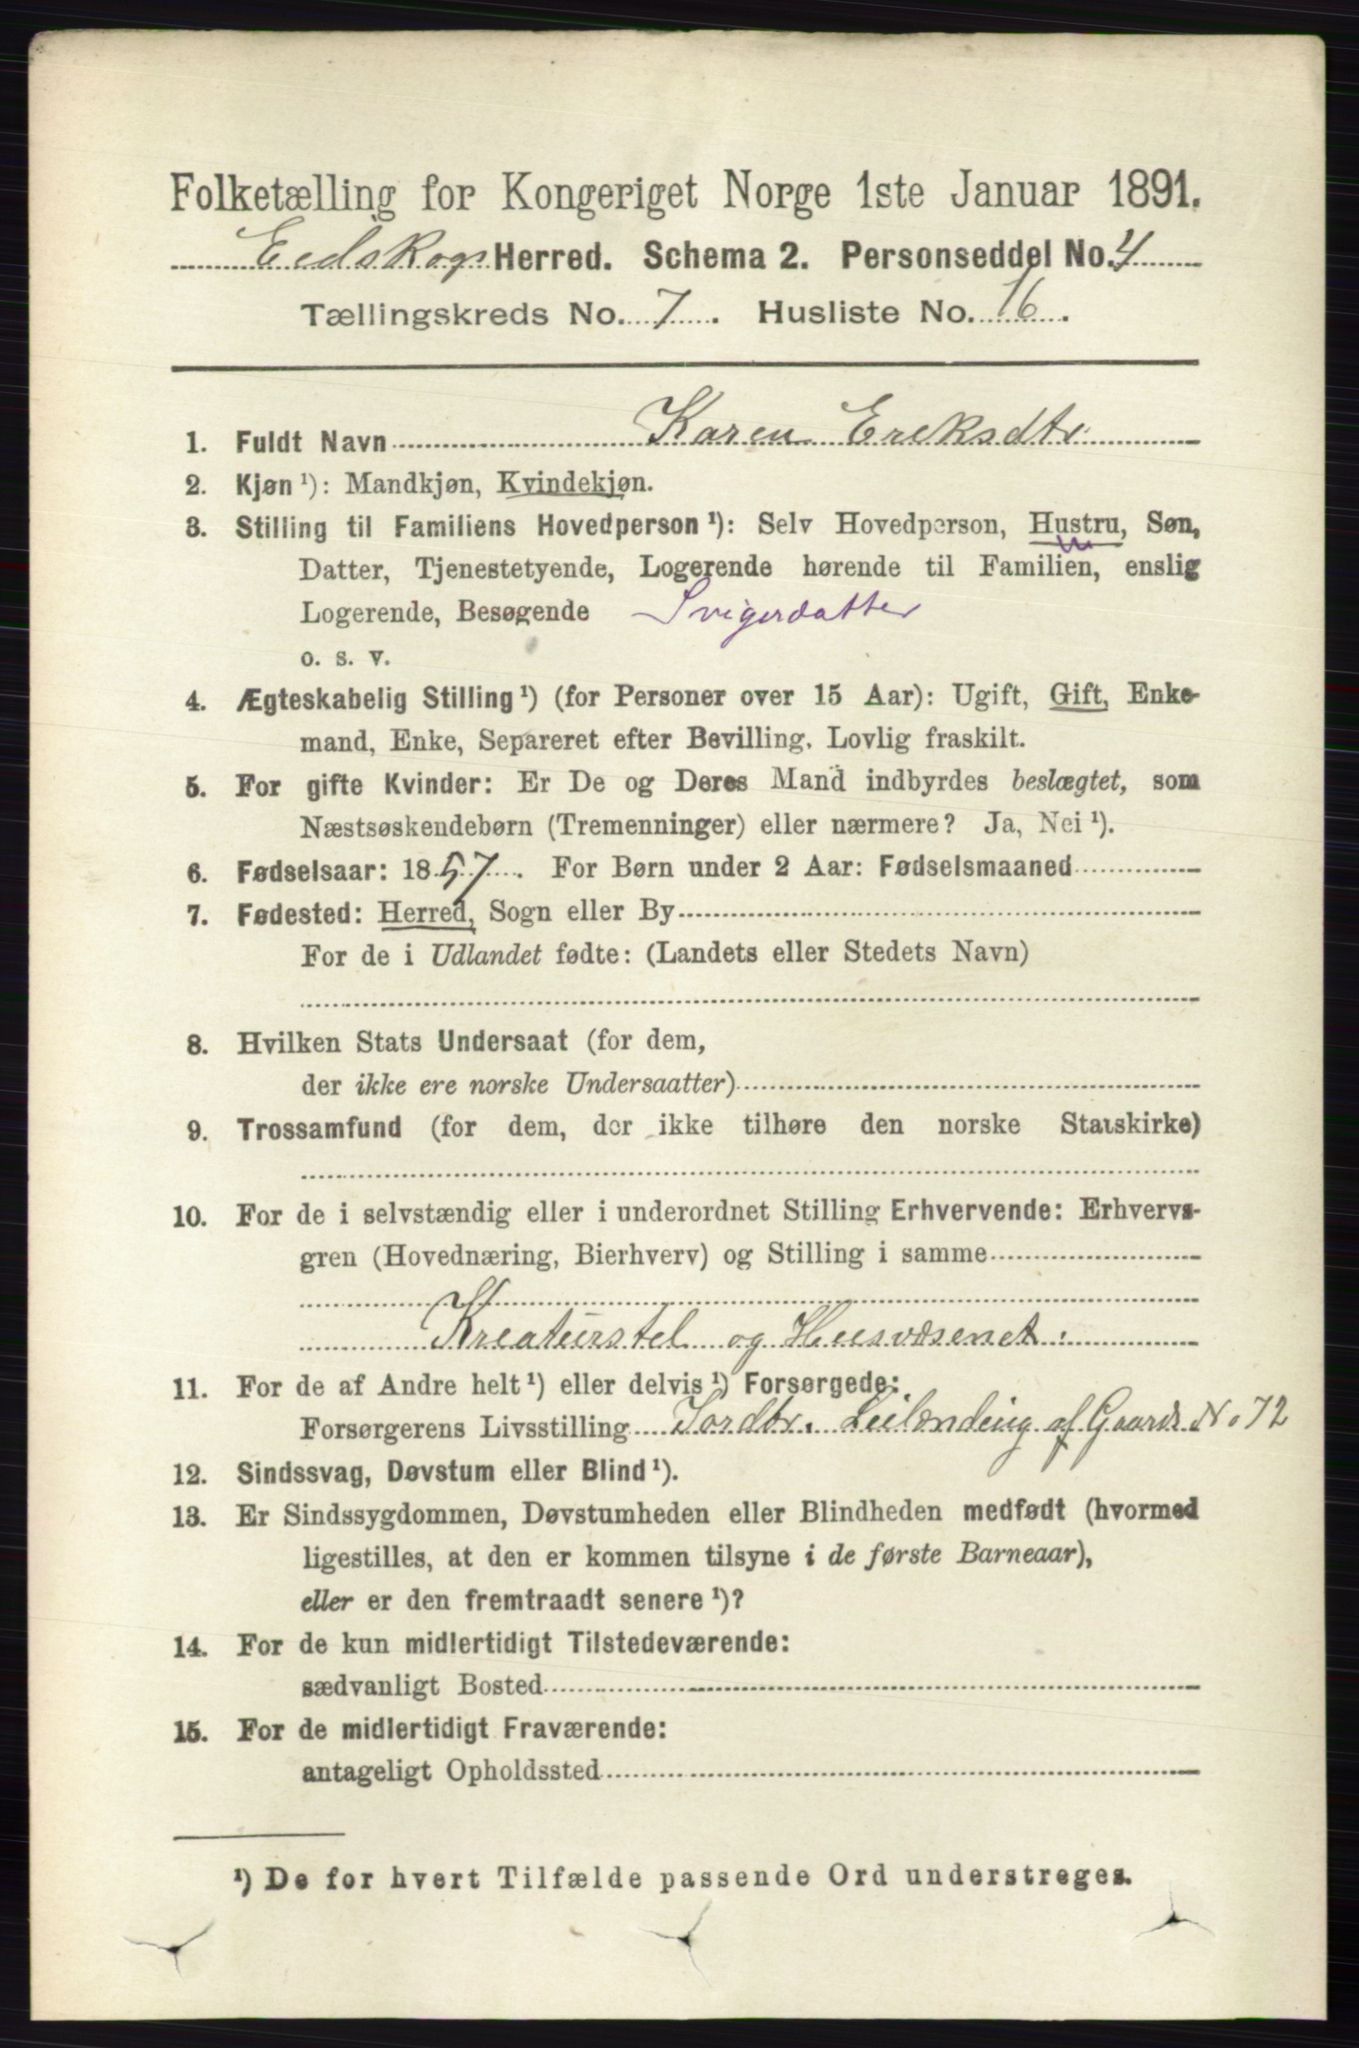 Folketælling for Kongeriget Norge 1ste Januar 1891.
Eidskogs Herred. Schema 2. Personseddel No. 4
Tællingskreds No. 7. Husliste No. 16.
1. Fuldt Navn Karen Ereksdtr
2. Kjøn ¹): Mandkjøn, Kvindekjøn.
3. Stilling til Familiens Hovedperson ¹): Selv Hovedperson, Hustru, Søn,
Datter, Tjenestetyende, Logerende hørende til Familien, enslig
Logerende, Besøgende Svigerdatter
o. s. v.
4. Ægteskabelig Stilling ¹) (for Personer over 15 Aar): Ugift, Gift, Enke-
mand, Enke, Separeret efter Bevilling. Lovlig fraskilt.
5. For gifte Kvinder: Er De og Deres Mand indbyrdes beslægtet, som
Næstsøskendebørn (Tremenninger) eller nærmere? Ja, Nei ¹).
6. Fødselsaar: 1857. For Børn under 2 Aar: Fødselsmaaned
7. Fødested: Herred, Sogn eller By
For de i Udlandet fødte: (Landets eller Stedets Navn)
8. Hvilken Stats Undersaat (for dem,
der ikke ere norske Undersaatter)
9. Trossamfund (for dem, der ikke tilhøre den norske Statskirke)
10. For de i selvstændig eller i underordnet Stilling Erhvervende: Erhvervs-
gren (Hovednæring, Bierhverv) og Stilling i samme
Kreaturstel og Husvæsenet.
11. For de af Andre helt ¹) eller delvis ¹) Forsørgede:
Forsørgerens Livsstilling Jordbr. Leilænding af Gaards No 72
12. Sindssvag, Døvstum eller Blind ¹).
13. Er Sindssygdommen, Døvstumheden eller Blindheden medfødt (hvormed
ligestilles, at den er kommen tilsyne i de første Barneaar),
eller er den fremtraadt senere ¹)?
14. For de kun midlertidigt Tilstedeværende:
sædvanligt Bosted
15. For de midlertidigt Fraværende:
antageligt Opholdssted
¹) De for hvert Tilfælde passende Ord understreges.